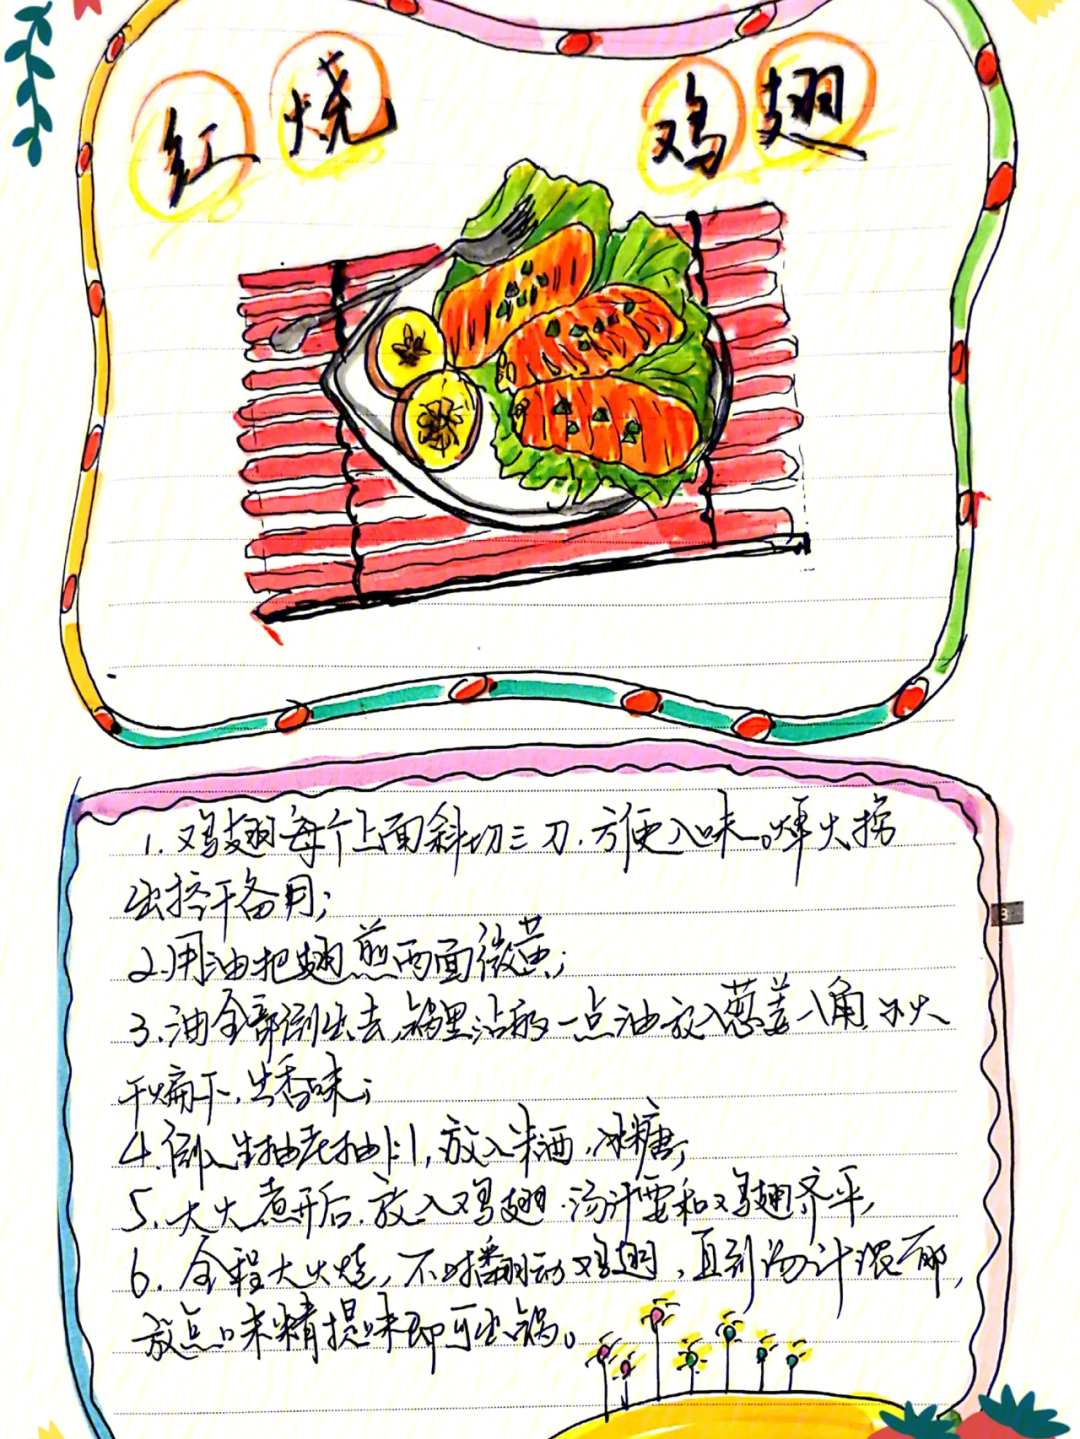 红烧 鸡翅
1. 鸡翅每个上面斜切三刀，方便入味。焯火捞
出控干备用；
2. 用油把翅煎两面微黄；
3. 油全部倒出去，锅里沾的一点油放入葱姜八角，小火
干煸下，出香味；
4. 倒入生抽老抽1:1，放入米酒，冰糖；
5. 大火煮开后，放入鸡翅，汤汁要和鸡翅齐平，
6. 全程大火烧，不时翻动鸡翅，直到汤汁浓郁，
放点味精提味即可出锅。
3